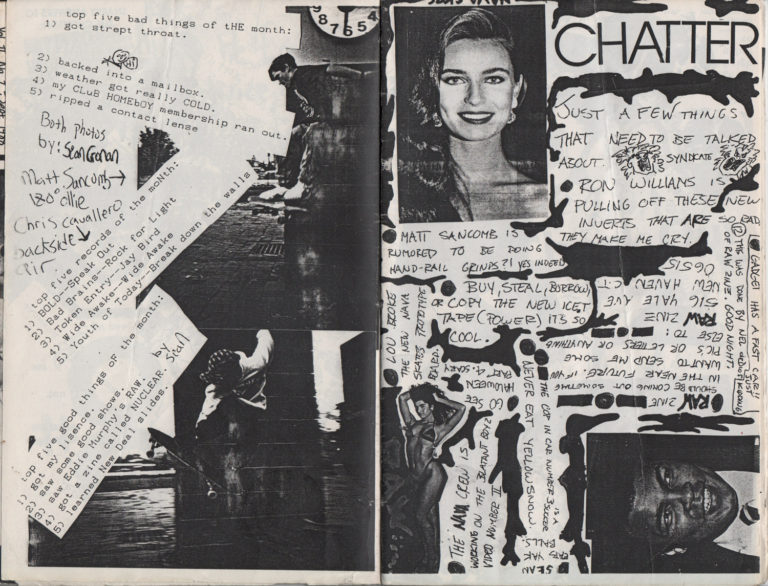 top five bad things of tHE month:
1) got strept throat.
2) backed into a mailbox.
3) weather got really COLD.
4) my CLuB HOMEBOY membership ran out.
5) ripped a contact lense
Both photos
by: Sean Cronan
Matt Sancomb →
180° ollie
Chris Cavallero
backside ↓
air
top five records of the moNth:
1) BOLD--Speak Out
2) Bad Brains--Rock for Light
3) Token Entry--Jay Bird
4) Wide Awake--Wide Awake
5) Youth of Today--Break down the walls
by
Sean
top five good things oF the month:
1) got my lisence.
2) saw some good shows.
3) saw Eddie Murphy's RAW.
4) got a zine called NUCLEAR.
5) learned New Deal slides.
CHATTER
JUST A FEW THINGS
THAT NEED TO BE TALKED
ABOUT.
SYNDICATE
• RON WILLIANS IS
PULLING OFF THESE NEW
INVERTS THAT ARE SO RAD
THEY MAKE ME CRY.
• MATT SANCOMB IS
RUMORED TO BE DOING
HAND-RAIL GRINDS?! YES INDEED
• BUY, STEAL, BORROW,
OR COPY THE NEW ICE T
TAPE (POWER) IT'S SO
COOL.
• LOU BROKE
THE NEW NAVA
SKATES PROTOTYPE
BOARD.
• GO SEE
HALOWEEN
PART 4. SUNK
• THE NAVA CREW IS
WORKING ON THE BLATANT BOYZ
VIDEO NUMBER II
• NEVER EAT YELLOW SNOW.
• THE COP IN CAR NUMBER 3 IS A
SUCKER
• SEAN
EATS YAK
BALLS.
• RAW ZINE
SHOULD BE COMING OUT SOMETIME
IN THE NEAR FUTURE. IF YOU
WANT TO SEND ME SOME
PICS OR LETTERS OR ANYTHING
ELSE TO:
RAW ZINE
516 YALE AVE
NEW HAVEN, CT.
06515
• GADGET HAS A FAST CAR!!
THIS WAS DONE BY NEIL
OF RAW ZINE. GOOD NIGHT!